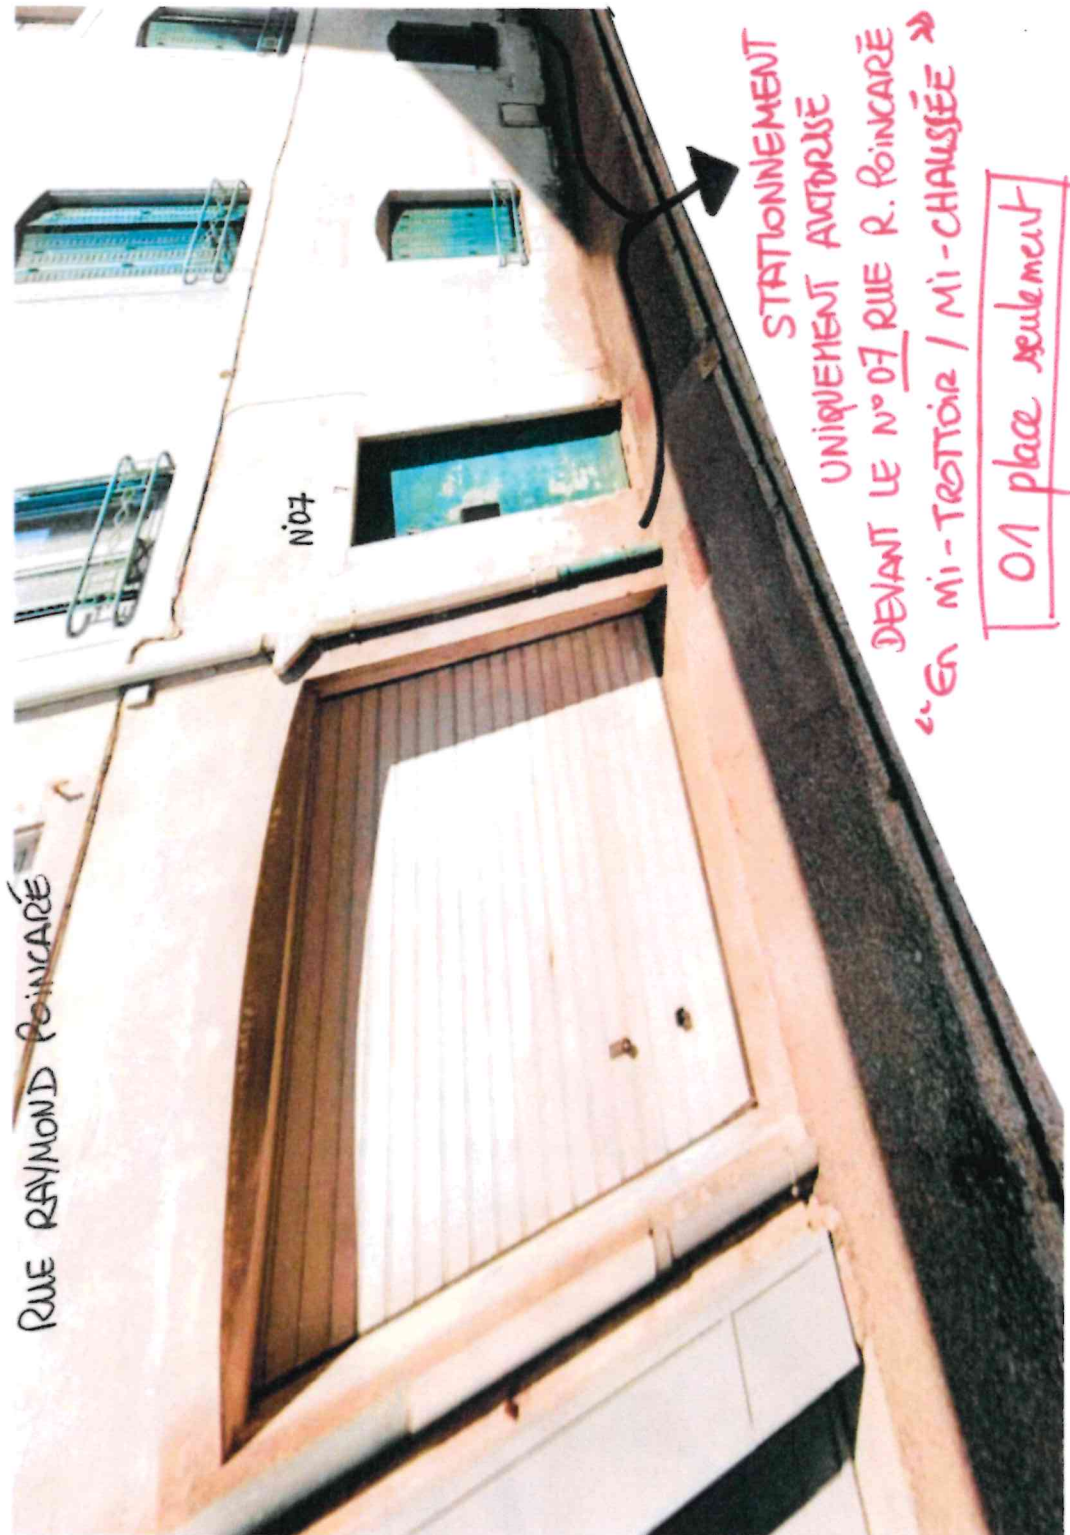 RUE RAYMOND POINCARÉ
N°07
STATIONNEMENT
UNIQUEMENT AUTORISÉ
DEVANT LE N° 07 RUE R. POINCARÉ
“En Mi-TROTTOIR / Mi-CHAUSSÉE”
01 place seulement